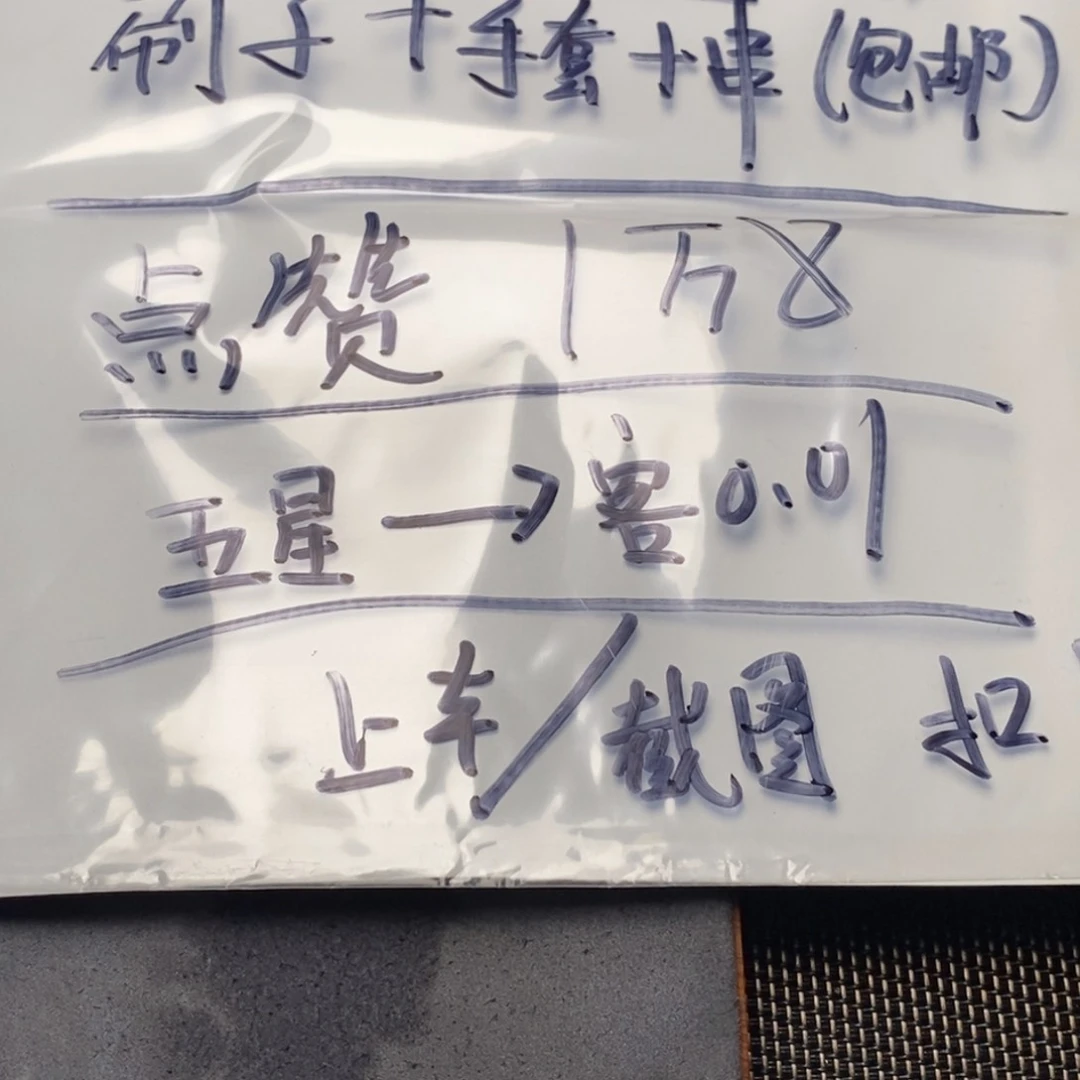 刷子+手套+串(包邮)
点赞 1万8
五星→客0.01
上车/截图 扣